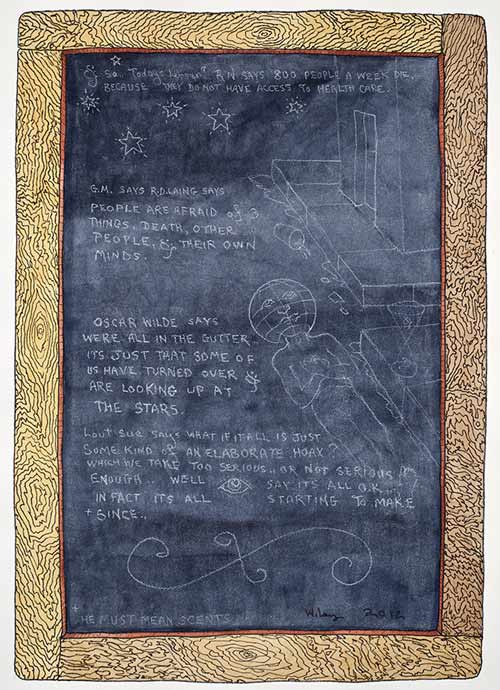 So. Todays Lesson? R.N SAYS 800 PEOPLE A WEEK DIE,
BECAUSE THEY DO NOT HAVE ACCESS TO HEALTH CARE.
G.M. SAYS R.D. LAING SAYS
PEOPLE ARE AFRAID of 3
THINGS. DEATH, OTHER
PEOPLE, & THEIR OWN
MINDS.
OSCAR WILDE SAYS
WERE ALL IN THE GUTTER
ITS JUST THAT SOME OF
US HAVE TURNED OVER &
ARE LOOKING UP AT
THE STARS.
SAYS WHAT IF IT ALL IS JUST
SOME KIND of AN ELABORATE HOAX?
WHICH WE TAKE TOO SERIOUS.. OR NOT SERIOUS
ENOUGH.. WELL SAY ITS ALL O.K....
IN FACT ITS ALL STARTING TO MAKE
+ SINCE..
Wiley 2012
+
HE MUST MEAN SCENTS